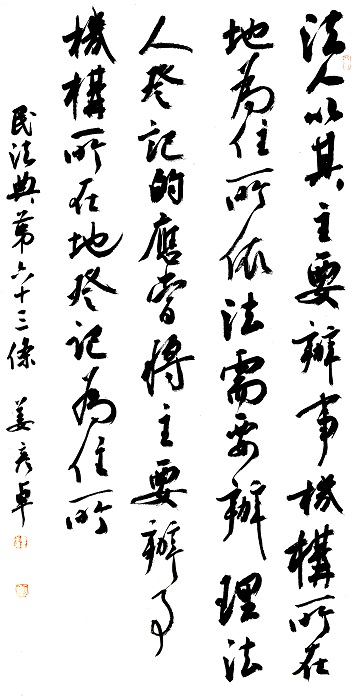 法人以其主要辦事機構所在
地為住所依法需要辦理法
人登記的應當將主要辦事
機構所在地登記為住所
民法典第六十三條 姜彦卓